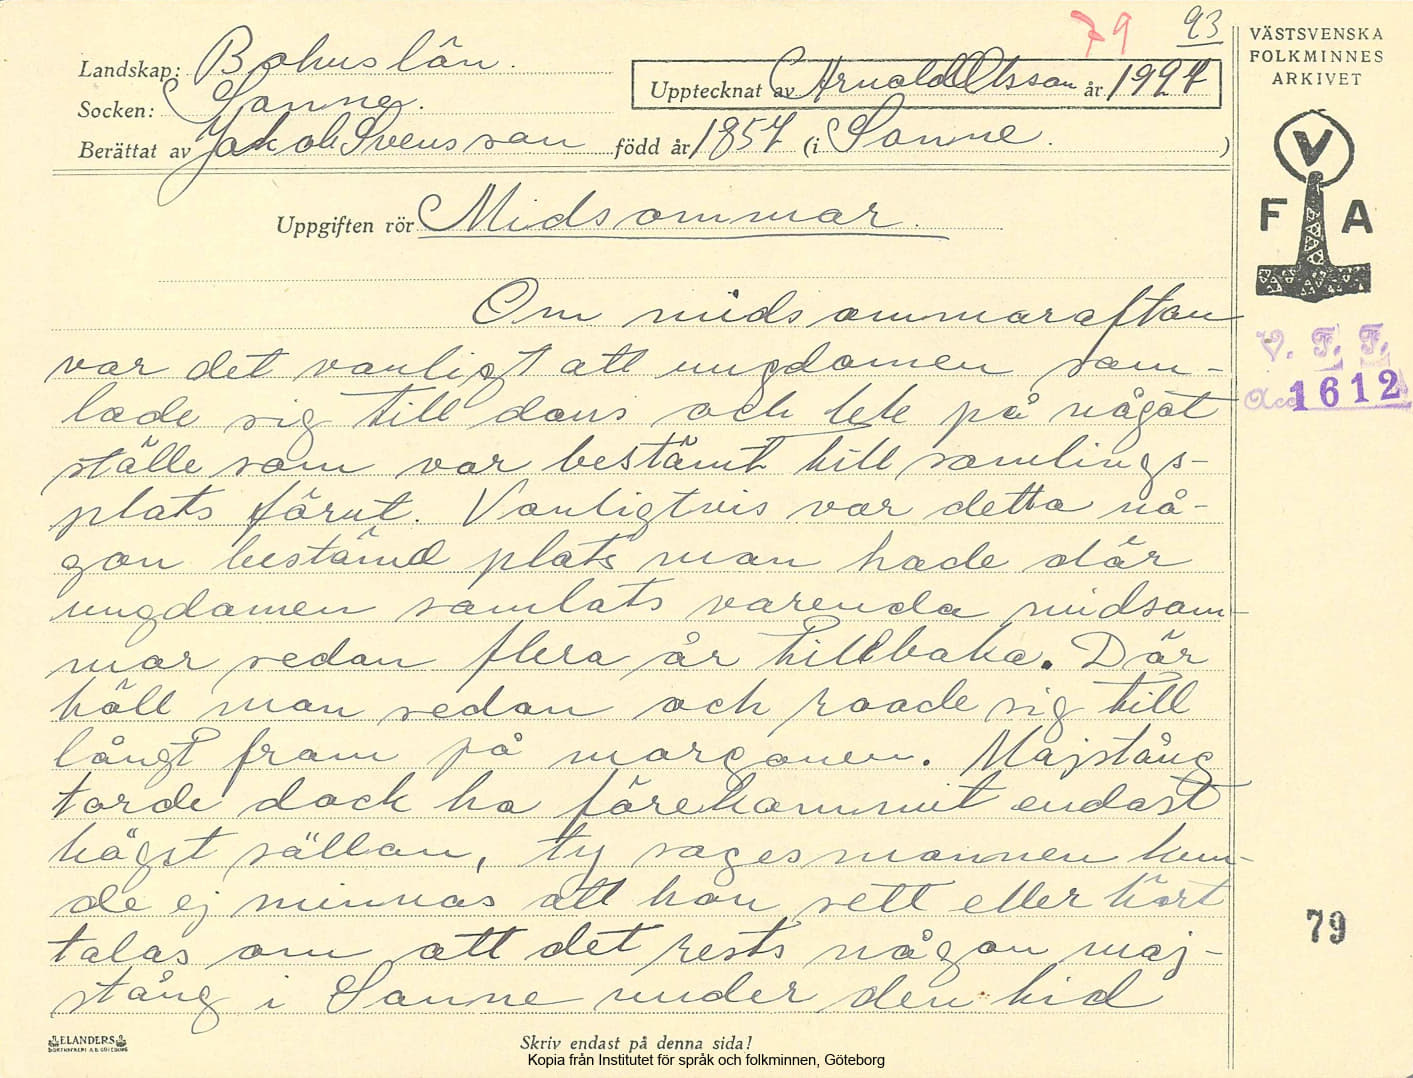 79 93
Landskap: Bohuslän.
Socken: Sanne.
Berättat av Jakob Svensson född år 1857 (i Sanne. )
Upptecknat av Arnold Olsson år 1927
VÄSTSVENSKA
FOLKMINNES
ARKIVET
V
F A
Uppgiften rör Midsommar.
Om midsommaraftan
var det vanligt att ungdomen sam-
lade sig till dans och lek på något
ställe som var bestämt till samlings-
plats förut. Vanligtvis var detta nå-
gon bestämd plats man hade där
ungdomen samlats varenda midsom-
mar sedan flera år tillbaka. Där
höll man sedan och roade sig till
långt fram på morgonen. Majstång
torde dock ha förekommit endast
högst sällan, ty sagesmannen kun-
de ej minnas att han sett eller hört
talas om att det rests någon maj-
stång i Sanne under den tid
V. F. F.
Acc 1612
79
ELANDERS
Skriv endast på denna sida!
Kopia från Institutet för språk och folkminnen, Göteborg